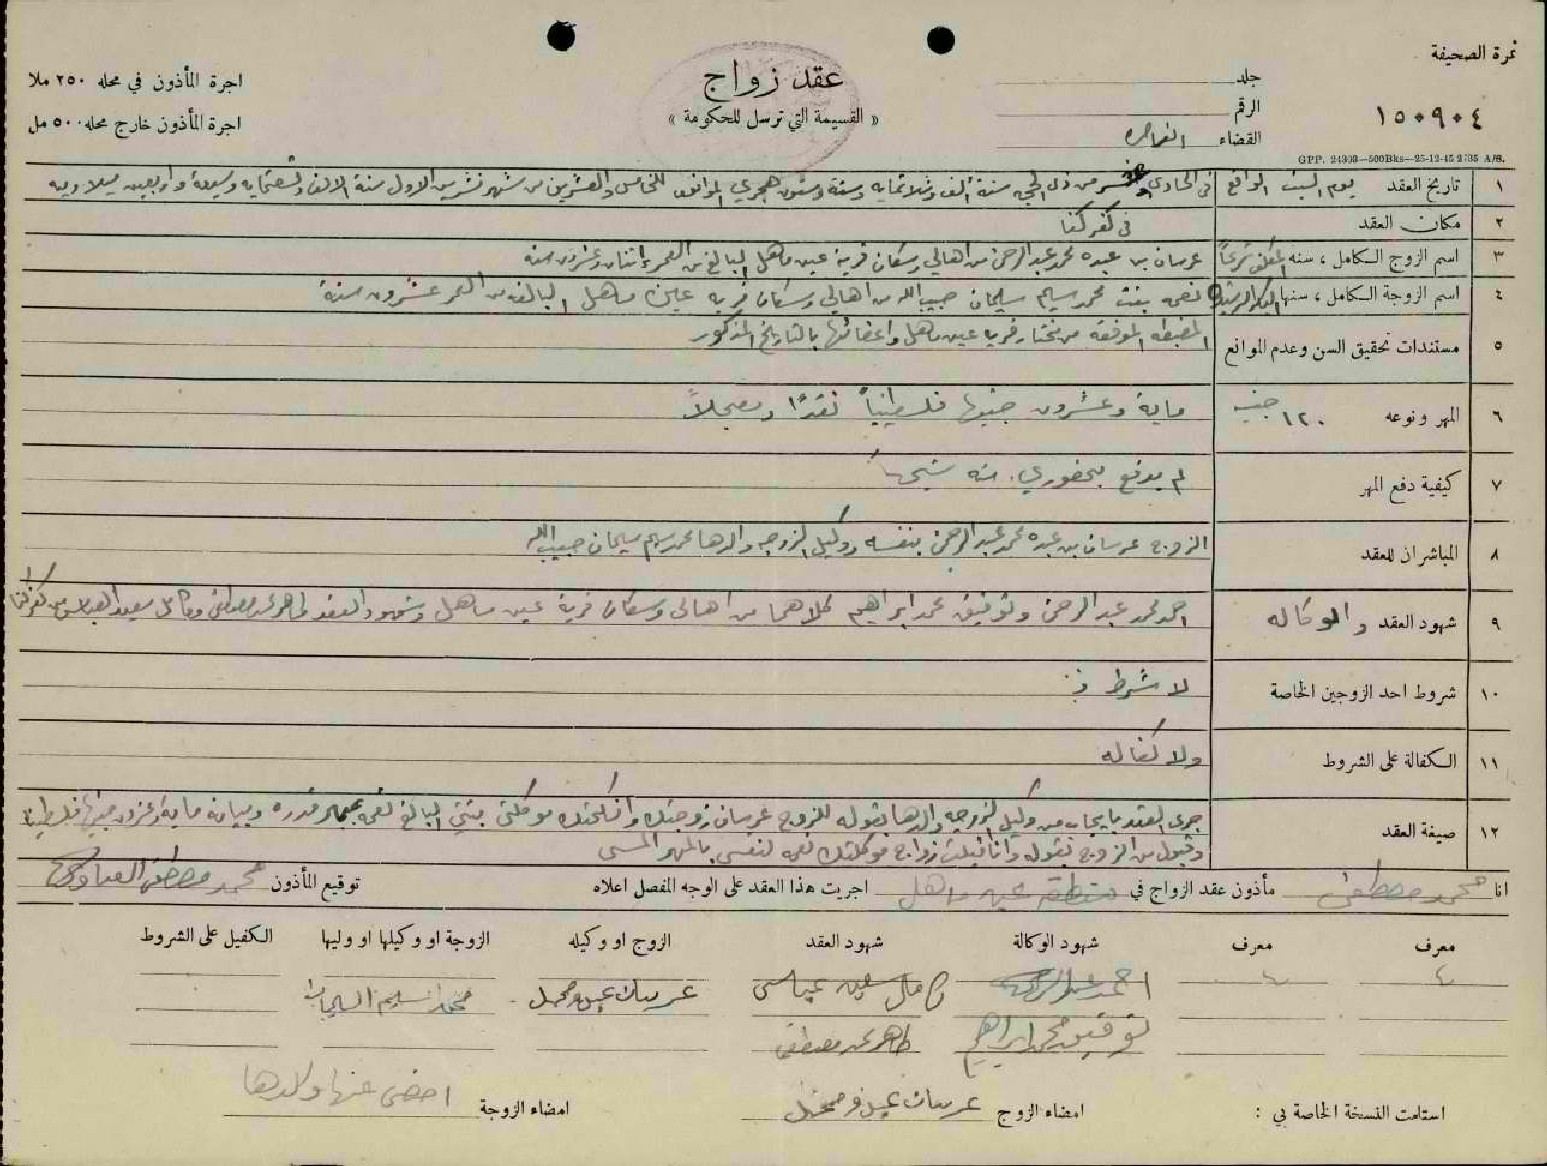 نمرة الصحيفة
١٥٠٩٠٤
جلد
الرقم
القضاء الناصره
عقد زواج
« القسيمة التي ترسل للحكومة »
اجرة المأذون في محله ٢٥٠ ملا
اجرة المأذون خارج محله ٥٠٠ مل
GPP. 24303—500Bks—25-12-45 2/35 A/S.
١ تاريخ العقد يوم السبت الواقع في الحادي عشر من ذي الحجه سنة ألف وثلاثمايه وستة وستون هجري الموافق الخامس والعشرين من شهر تشرين الاول سنة الالف وتسعمايه وسبعة واربعين ميلاديه
٢ مكان العقد في كفر كنا
٣ اسم الزوج الكامل ، سنه المكلف شرعاً عرسان بن عبده محمد عبد الرحمن من اهالي وسكان قرية عين ماهل البالغ من العمر اثنان وعشرون سنة
٤ اسم الزوجة الكامل ، سنها البكر الرشيدة نعمه بنت محمد سليم سليمان حبيب الله من اهالي وسكان قرية عين ماهل البالغه من العمر عشرون سنة
٥ مستندات تحقيق السن وعدم الموانع المضبطه الموقعه من مختار قريا عين ماهل واعضائها بالتاريخ المذكور
٦ المهر ونوعه ١٢٠ جنيه ماية وعشرون جنيها فلسطينياً نقدًا ومعجلاً
٧ كيفية دفع المهر لم يدفع بحضوري . منه شيء
٨ المباشران للعقد الزوج عرسان بن عبده محمد عبد الرحمن بنفسه ووكيل الزوجه والدها محمد سليم سليمان حبيب الله
٩ شهود العقد والوكاله احمد محمد عبد الرحمن وتوفيق محمد ابراهيم كلاهما من اهالي وسكان قرية عين ماهل وشهود العقد طاهر محمد مصطفى وكامل سعيد العباسي من كفركنا
١٠ شروط احد الزوجين الخاصة لا شرط
١١ الكفالة على الشروط ولا كفاله
١٢ صيغة العقد جرى العقد بايجاب من وكيل الزوجه والدها بقوله للزوج عرسان زوجتك وانكحتك موكلتي بنتي البالغ نعمه بمهر قدره وبيانه ماية وعشرون جنيها فلسطينيا
وقبول من الزوج بقوله وانا قبلت زواج موكلتك نعمه لنفسي بالمهر المسمى
انا محمد مصطفى مأذون عقد الزواج في منطقة عين ماهل اجريت هذا العقد على الوجه المفصل اعلاه توقيع المأذون محمد مصطفى
معرف معرف شهود الوكالة شهود العقد الزوج او وكيله الزوجة او وكيلها او وليها الكفيل على الشروط
كامل سعيد عباسي عرسان عبد محمد محمد سليم السليمان
توفيق محمد ابراهيم طاهر محمد مصطفى
استلمت النسخة الخاصة بي : امضاء الزوج عرسان عبد محمد امضاء الزوجة امضى عنها والدها